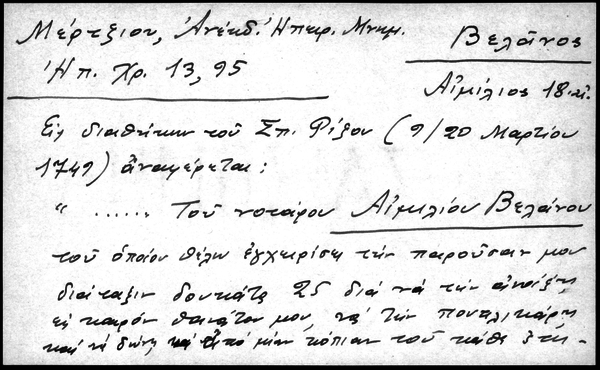 Μέρτζιου, Ἀνέκδ. Ἠπειρ. Μνημ.
Βελᾶνος
Ἠπ. Χρ. 13, 95
Αἰμίλιος 18 αἰ.
Εἰς διαθήκην τοῦ Σπ. Ρίζου (9/20 Μαρτίου
1749) ἀναφέρεται:
" ...... Τοῦ νοτάρου Αἰμιλίου Βελάνου
τοῦ ὁποίου θέλω ἐγχειρίσει τήν παροῦσαν μου
διάταξιν δουκάτα 25 διά νά τήν ἀνοίξῃ
εἰς καιρόν θανάτου μου, νά τήν πουπλικάρῃ
καί νά δώσῃ καί ἀπό μίαν κόπιαν τοῦ κάθε